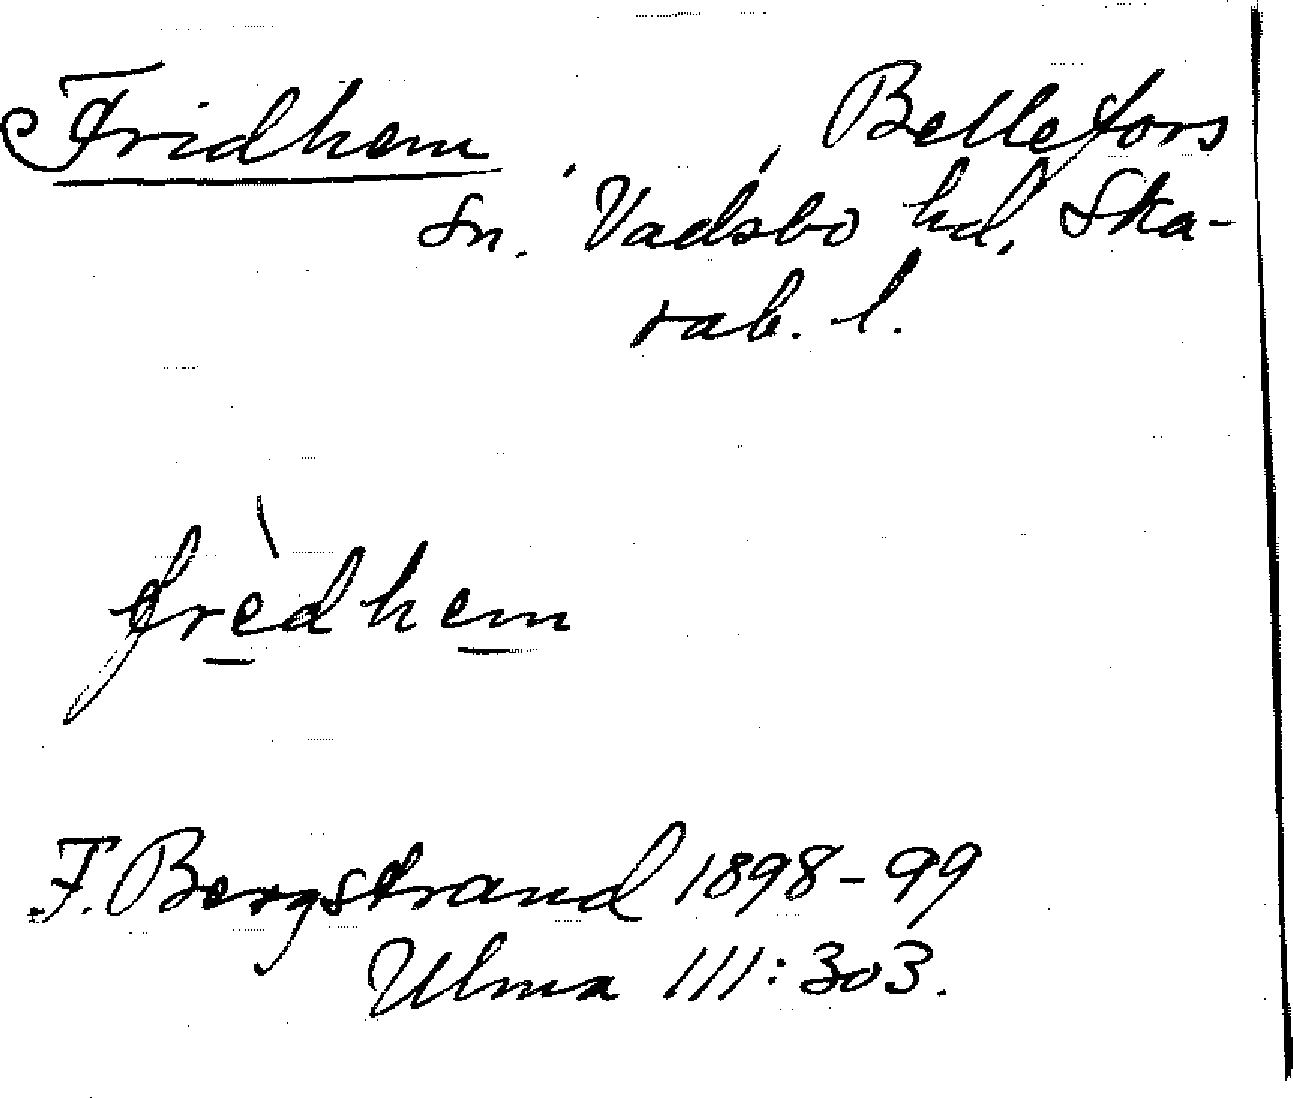 Fridhem, , Bellefors
sn. Vadsbo hd, Ska-
rab. l.
frèdhem
F. Bergstrand 1898-99
Ulma 111:303.